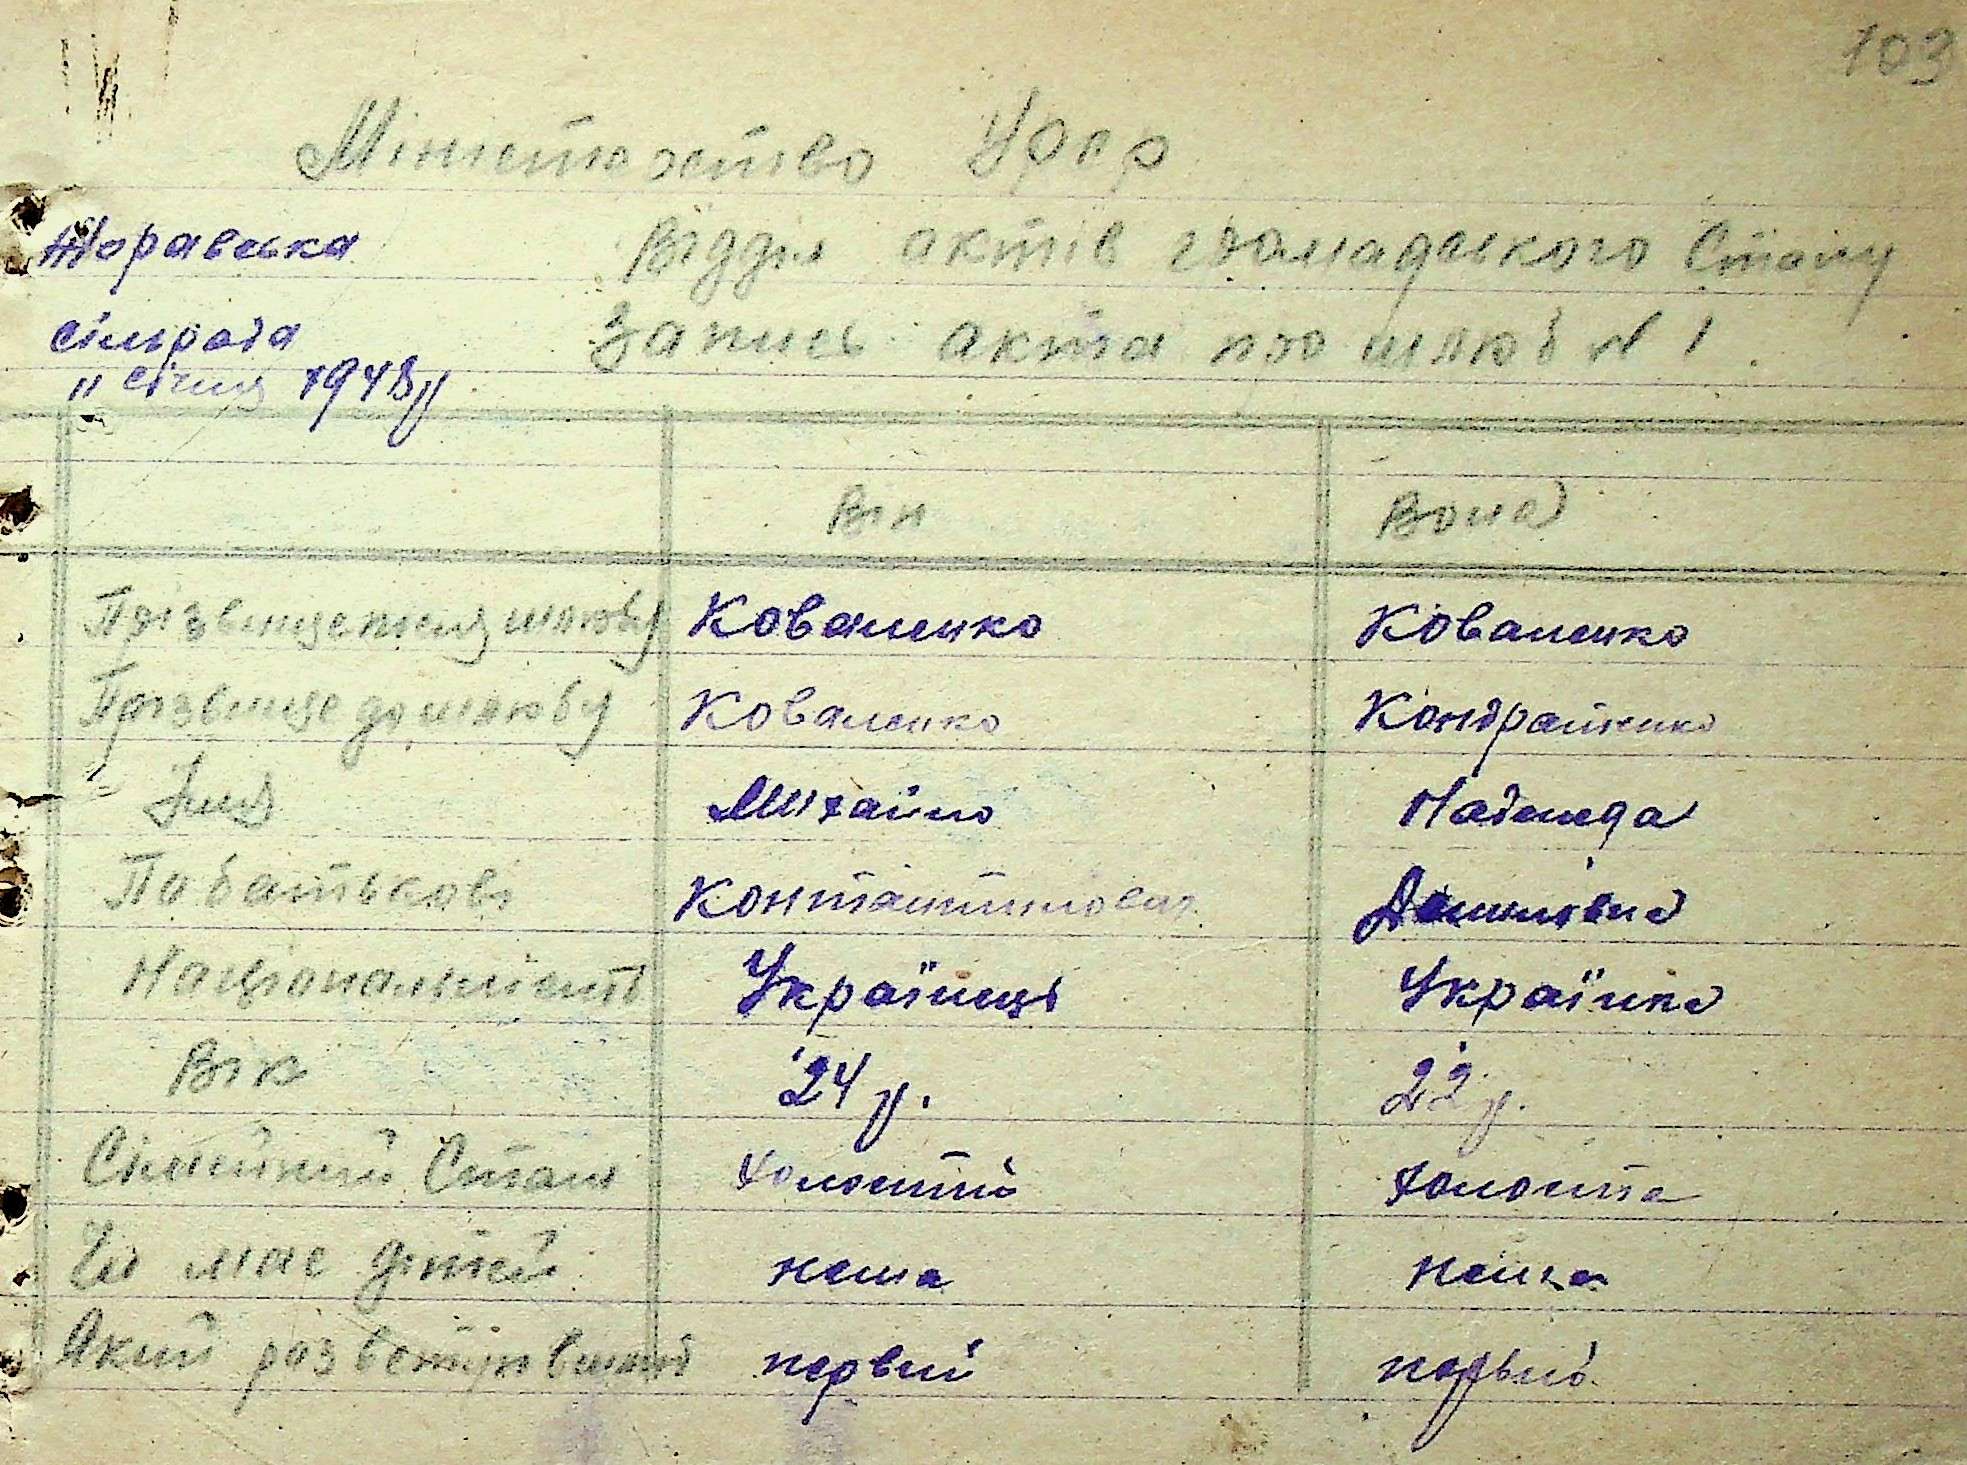 103
Міністерство УРСР
Жоравська Відділ актів громадського Стану
сільрада Запись акта про шлюб N 1.
11 січня 1948 р
Він Вона
Прізвище після шлюбу Коваленко Коваленко
Прізвище до шлюбу Коваленко Кондратенко
Імя Михайло Надежда
По батькові Контантинович Данилівна
Національність Українець Українка
Вік 24 р. 22 р.
Сімейний Стан холостий холоста
Чи має дітей нема нема
Який раз вступивший первий первий